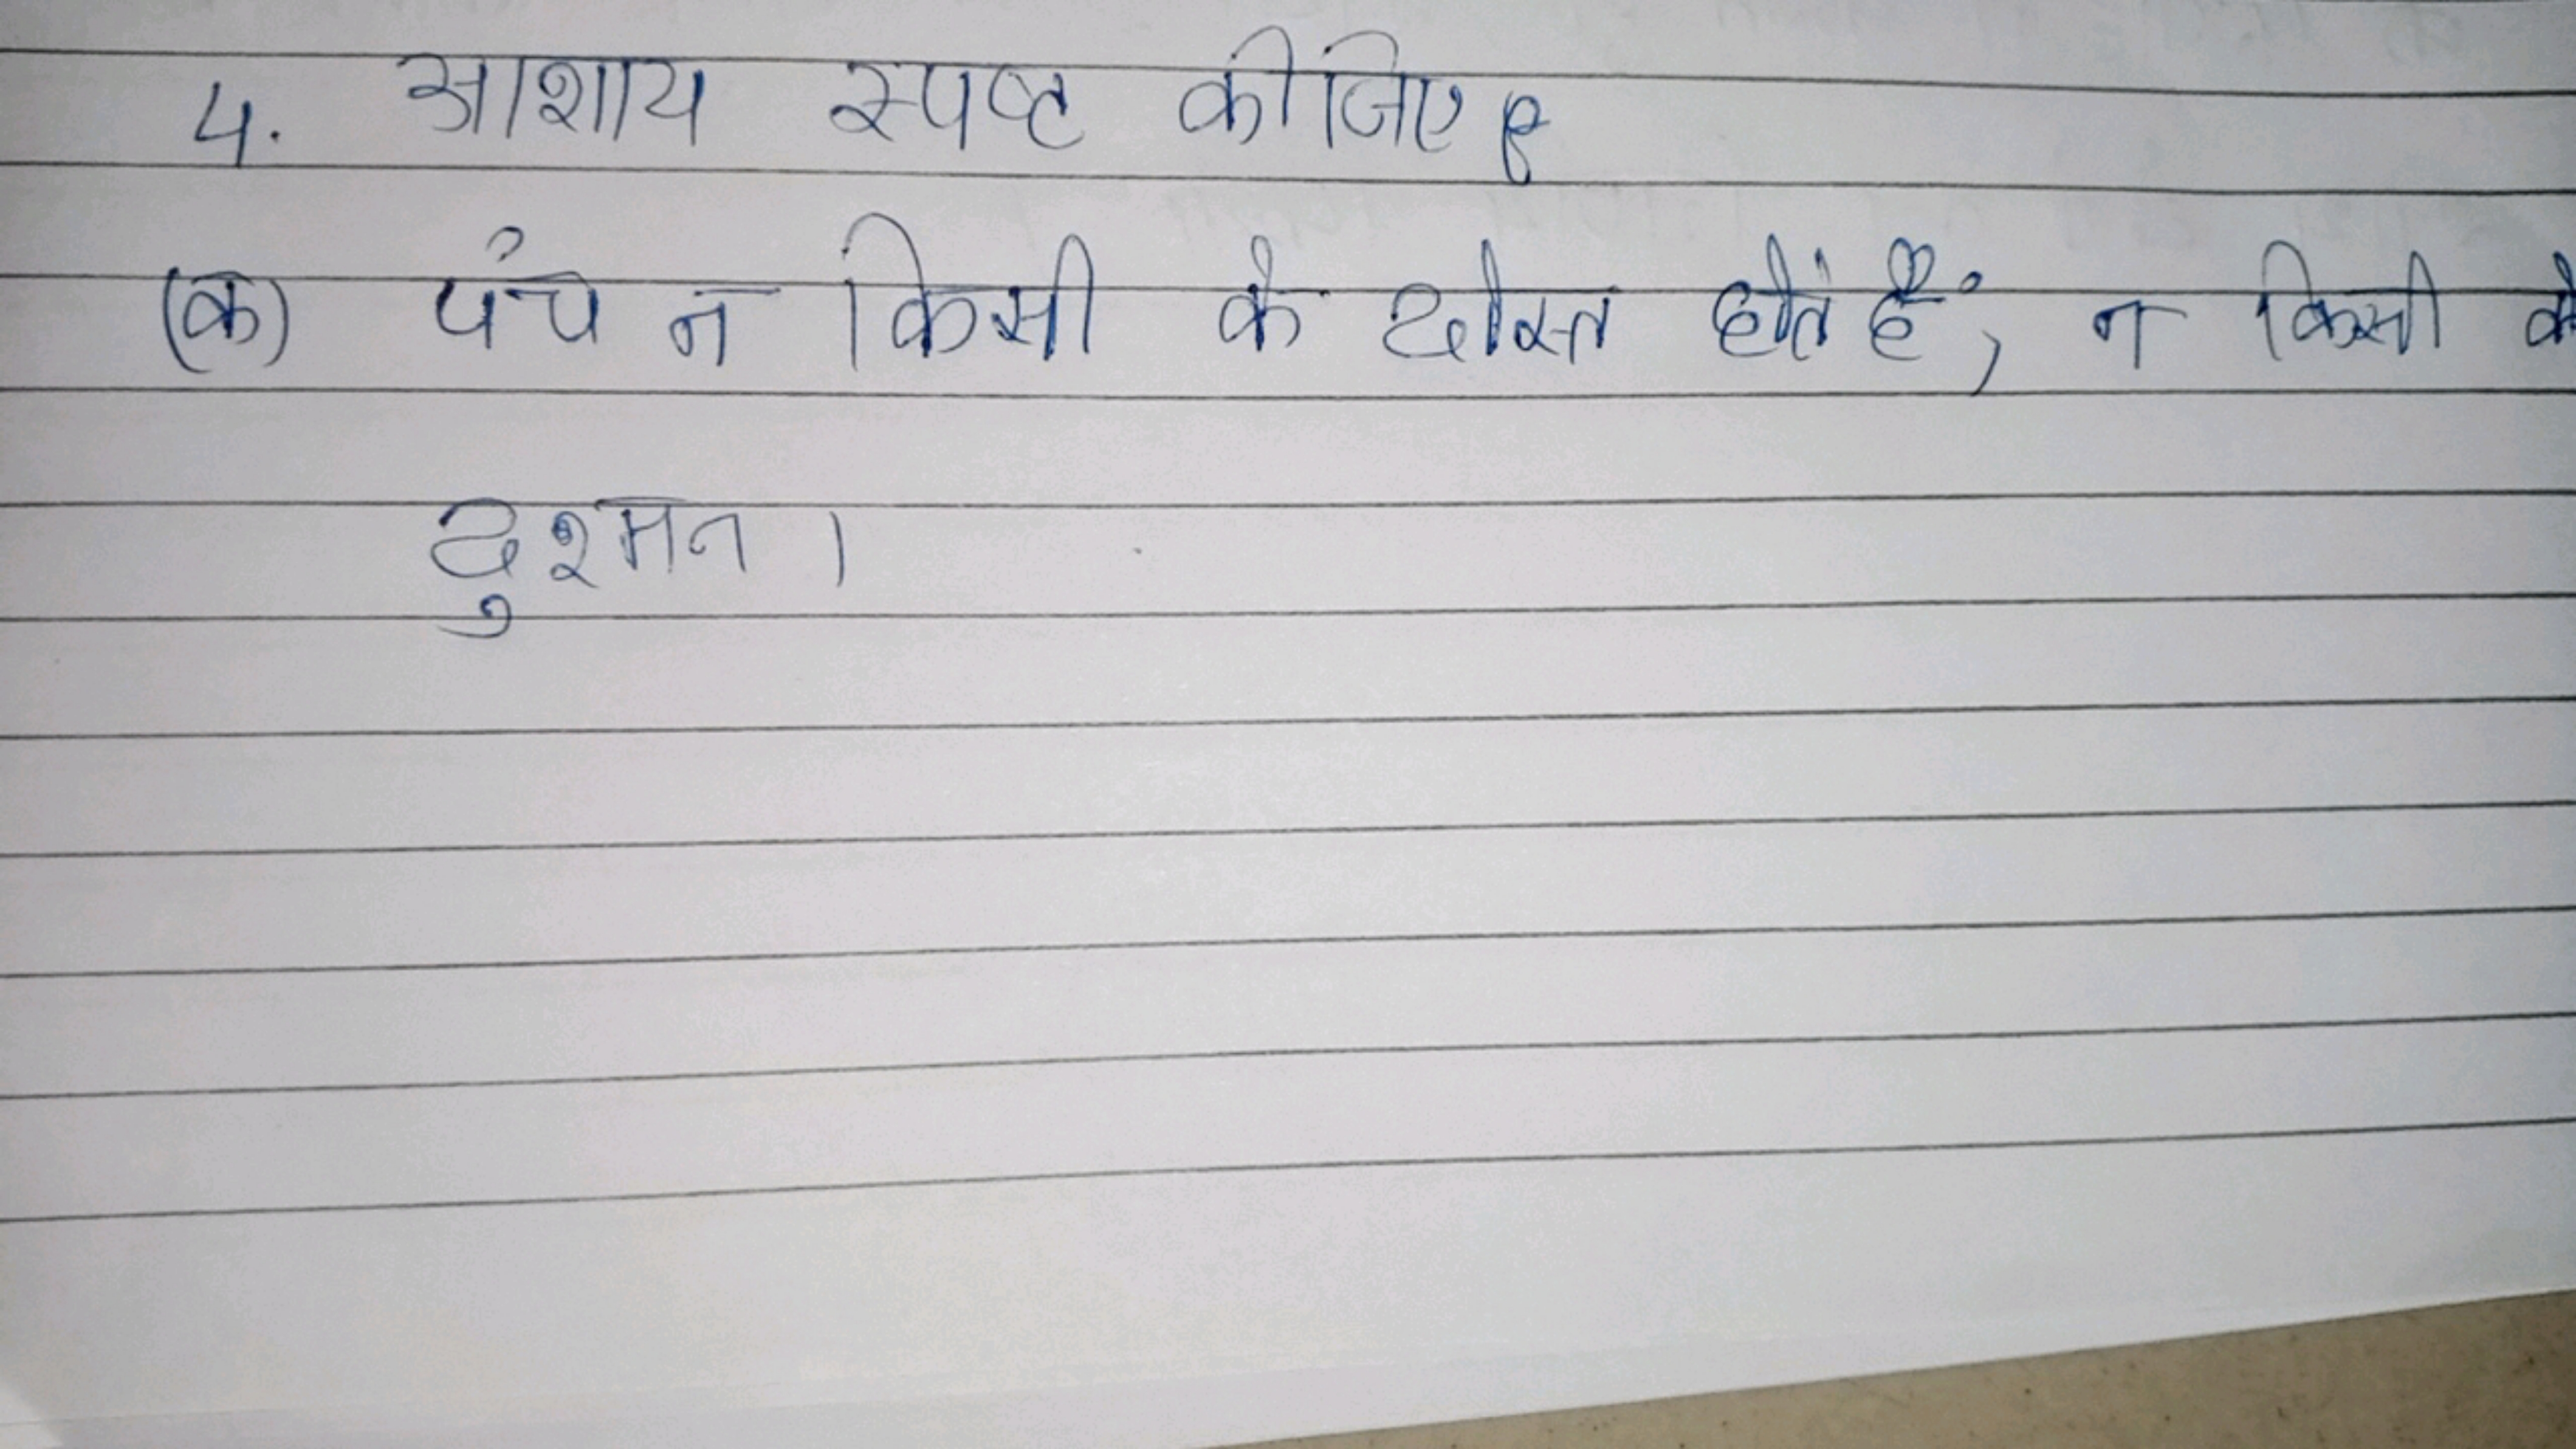 4. आशाय स्पष्ट कीजिए
(क) पंच न किसी के दोस्त होतें हैं, न किसी के
दुश्मन ।